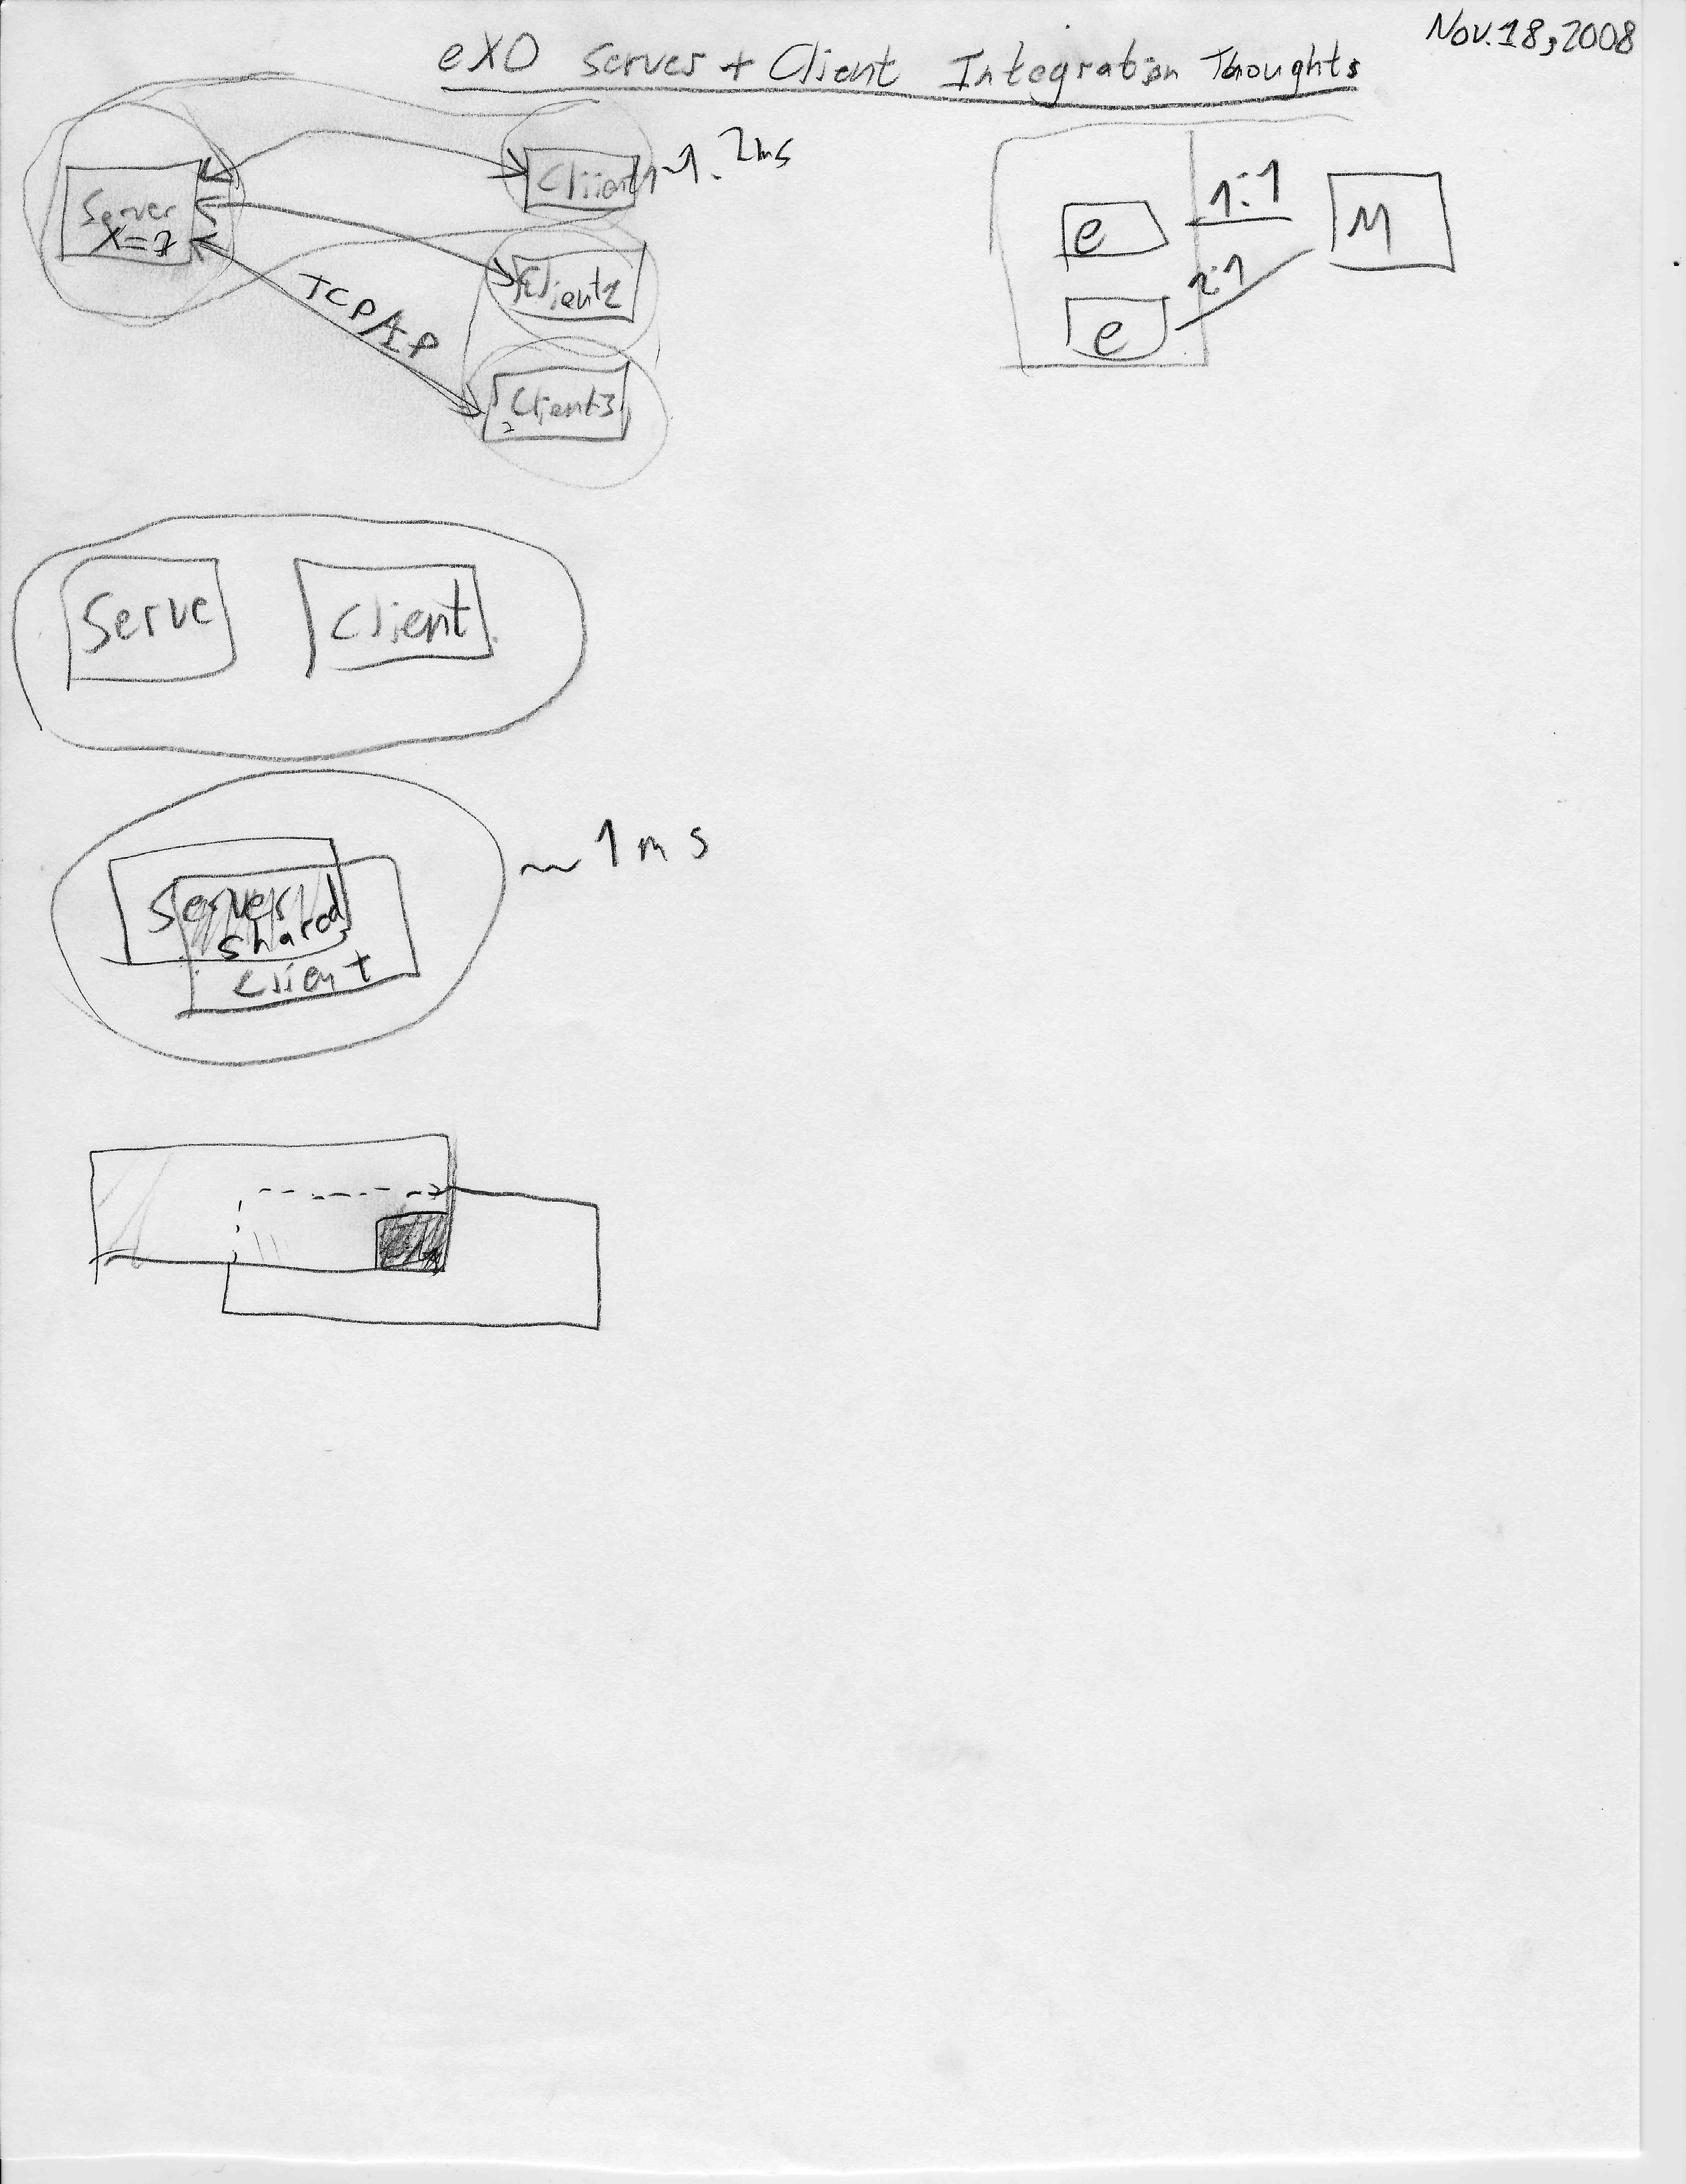 Nov. 18, 2008
eXO Server + Client Integration Thoughts
Server
X=7
Client1 ~1.2ms
Client2
TCP/IP
Client3
e
1:1
M
e
1:1
Serve
Client
Server
shared
client
~1ms